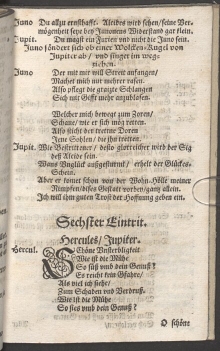 Juno Du allzu ernsthaffte. Alcides wird sehen/ seine Ver-
mögenheit seye des Junonens Widerstand gar klein.
Jupit. Du magst ein Furien und nicht die Juno seyn.
Juno söndert sich ob einer Wolcken-Kugel von
Jupiter ab / und singet im weg-
ziehen.
Juno Der mit mir will Streit anfangen/
Machet mich nur mehrer rasen.
Also pflegt die gereizte Schlangen
Sich mit Gifft mehr anzublasen.
Welcher mich bewegt zum Zoren/
Schaue/ wie er sich mög retten.
Also sticht der Doren
Jene Sohlen/ die ihn tretten.
Jupit. Wie Bestirttener / desto glorreicher wird der Sig
deß Alcide seyn.
Wans Unglück außgestürmt / erhelt der Glückes-
Schein.
Aber er kömt schon von der Wohn-Höle meiner
Nimpfen/ dises Gestatt vorbey/ gantz allein.
Ich will ihm guten Trost der Hoffnung geben ein.
Sechster Eintrit.
Hercules/ Jupiter.
Hercul. Schöne Unsterbligkeit
Wie ist die Mühe
So süß umb dein Genuß ?
Es reicht kein Gefahre/
Als viel ich siehe/
Zum Schaden und Verdruß.
Wie ist die Mühe
So süß umb dein Genuß ?
O schöne